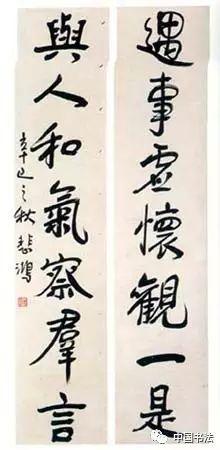 遇事虛懷觀一是
與人和氣察羣言
辛巳之秋 悲鴻
中国书法